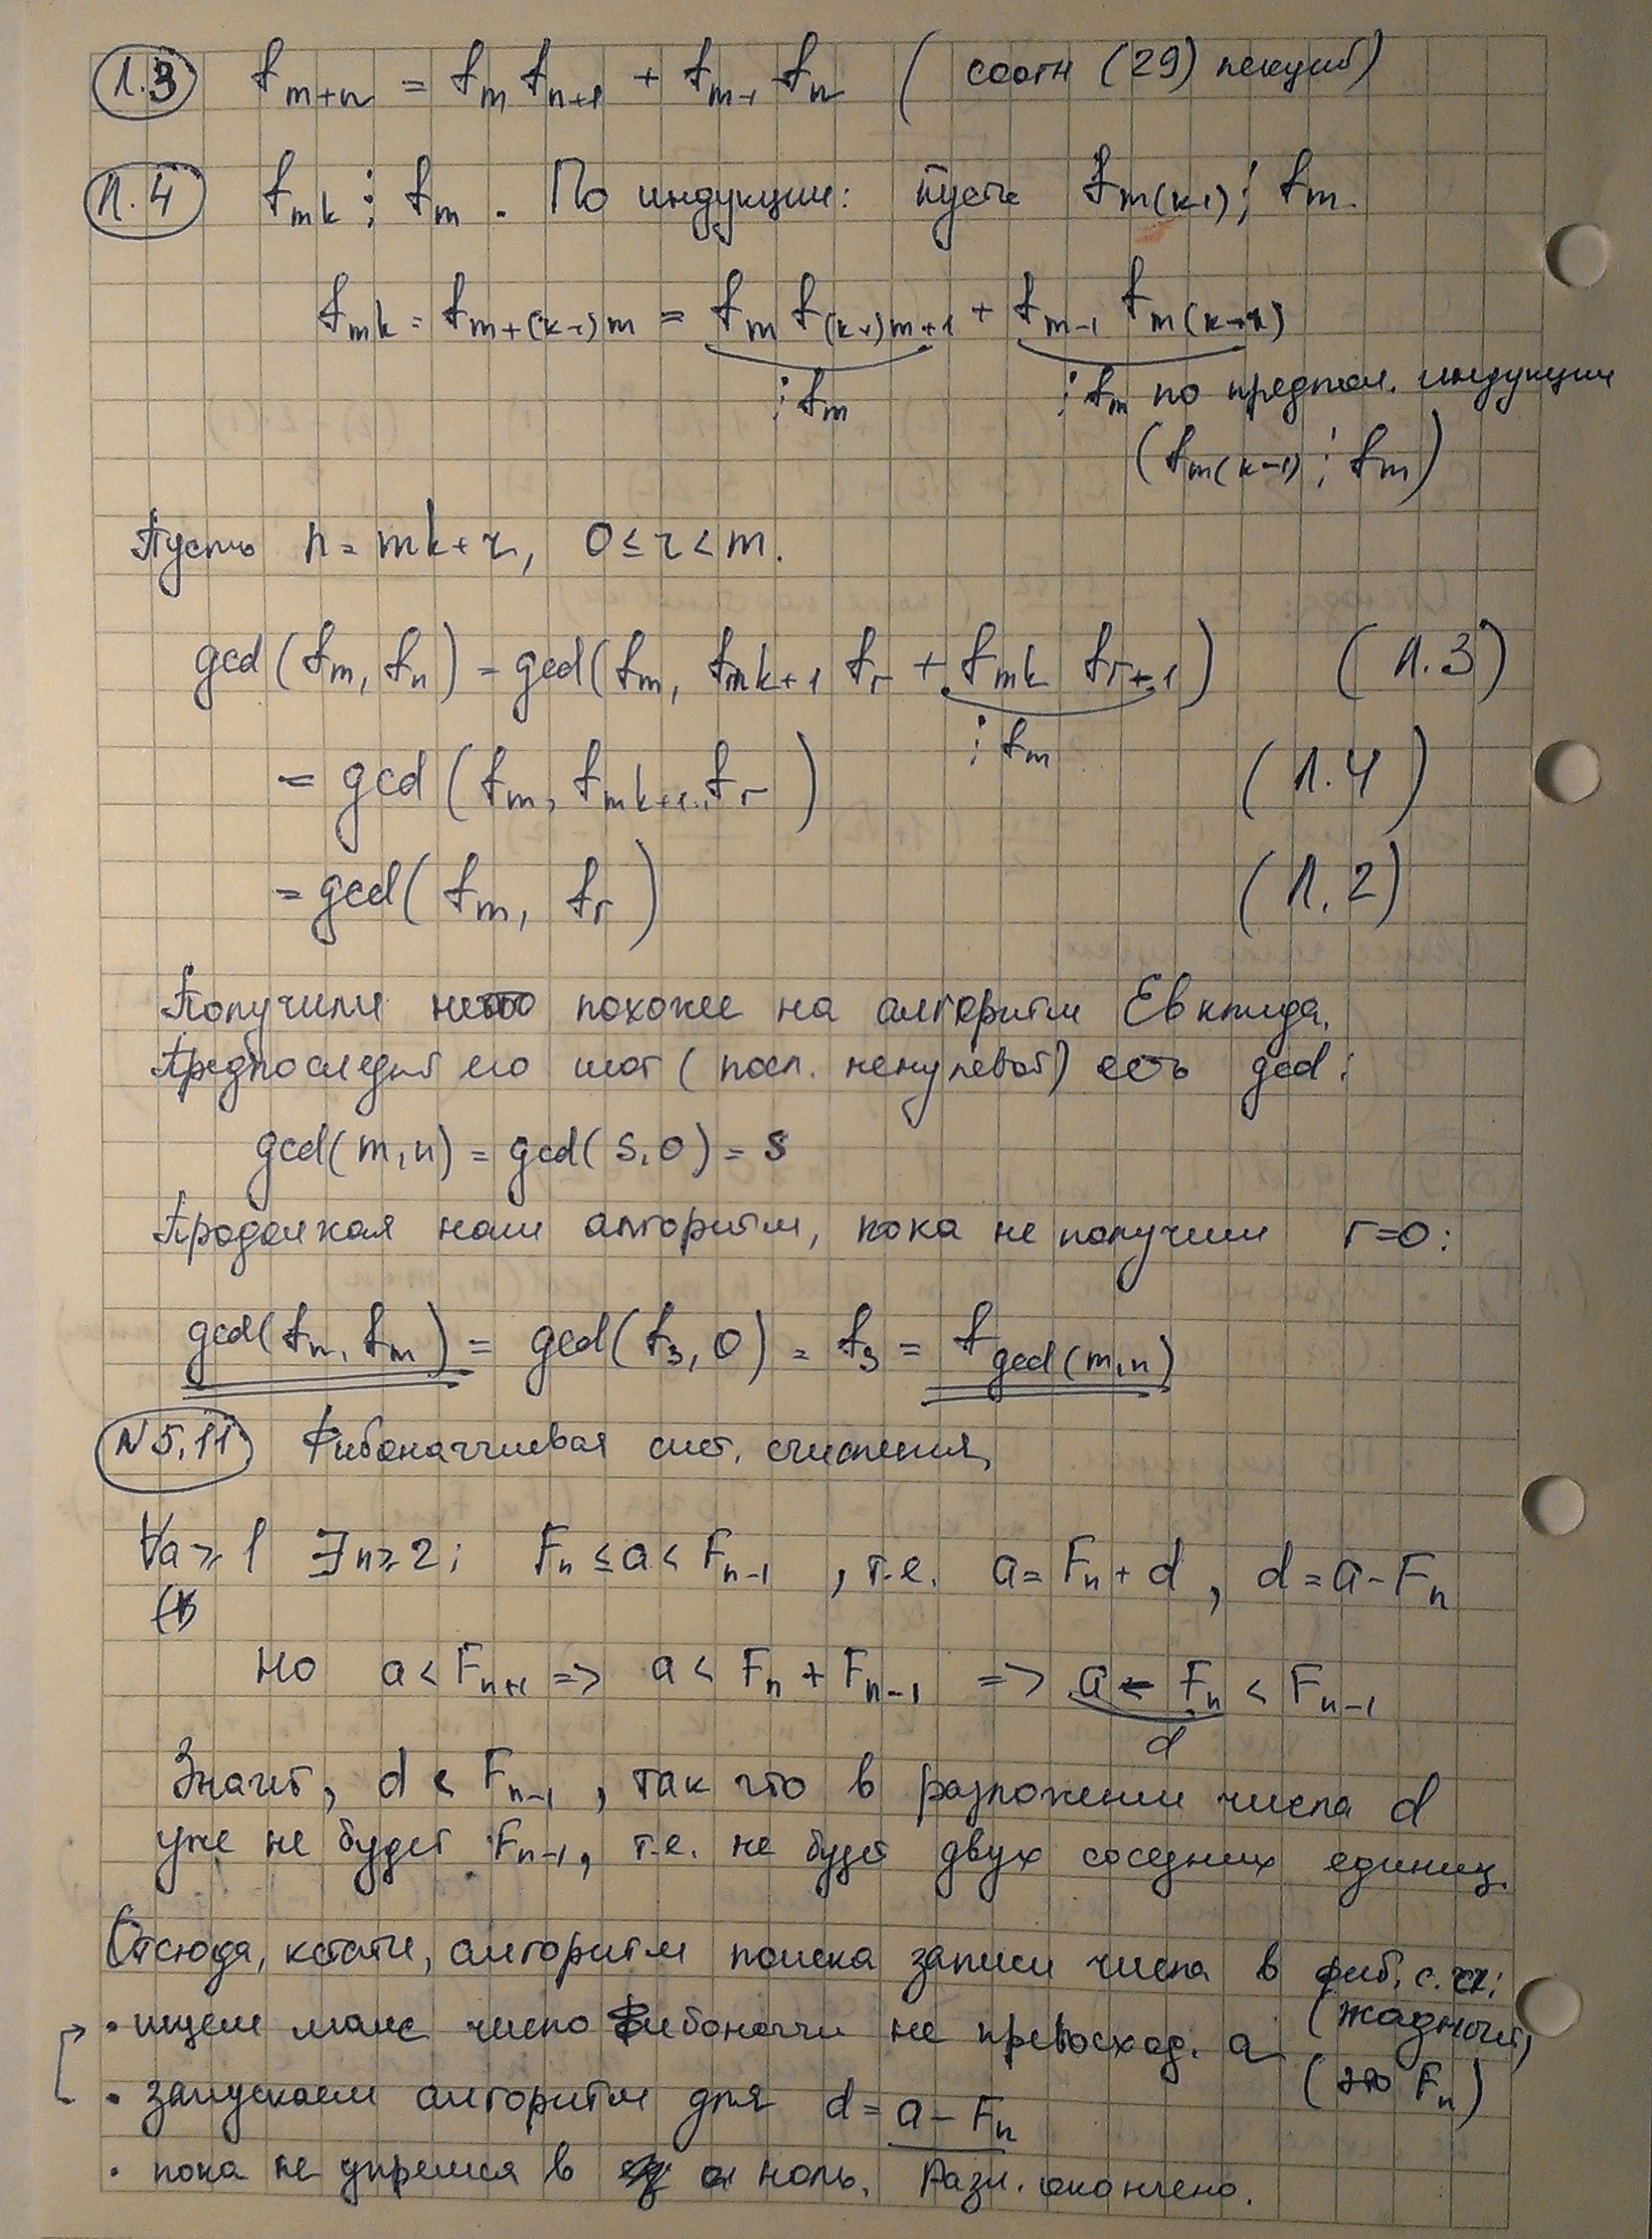 Л.3 f_{m+n} = f_m f_{n+1} + f_{m-1} f_n (соотн (29) лекций)
Л.4 f_{mk} ⋮ f_m. По индукции: пусть f_{m(k-1)} ⋮ f_m.
f_{mk} = f_{m+(k-1)m} = f_m f_{(k-1)m+1} + f_{m-1} f_{m(k-1)}
⋮ f_m ⋮ f_m по предпол. индукции
(f_{m(k-1)} ⋮ f_m)
Пусть n = mk+r, 0 ≤ r < m.
gcd(f_m, f_n) = gcd(f_m, f_{mk+1} f_r + f_{mk} f_{r+1}) (Л.3)
⋮ f_m
= gcd(f_m, f_{mk+1} f_r) (Л.4)
= gcd(f_m, f_r) (Л.2)
Получили нечто похожее на алгоритм Евклида.
Предпоследний его шаг (посл. ненулевой) есть gcd:
gcd(m,n) = gcd(s,0) = s
Продолжая наш алгоритм, пока не получим r=0:
gcd(f_n, f_m) = gcd(f_s, 0) = f_s = f_{gcd(m,n)}
N 5.11 Фибоначчиевая сист. счисления
∀a ≥ 1 ∃n ≥ 2: F_n ≤ a < F_{n-1}, т.е. a = F_n + d, d = a - F_n
но a < F_{n+1} => a < F_n + F_{n-1} => a - F_n < F_{n-1}
d
Значит, d < F_{n-1}, так что в разложении числа d
уже не будет F_{n-1}, т.е. не будет двух соседних единиц.
Отсюда, кстати, алгоритм поиска записи числа в фиб. с. сч:
(жадный)
• ищем макс число Фибоначчи не превосход. a
(это F_n)
• запускаем алгоритм для d = a - F_n
• пока не упремся в ноль. Разл. окончено.